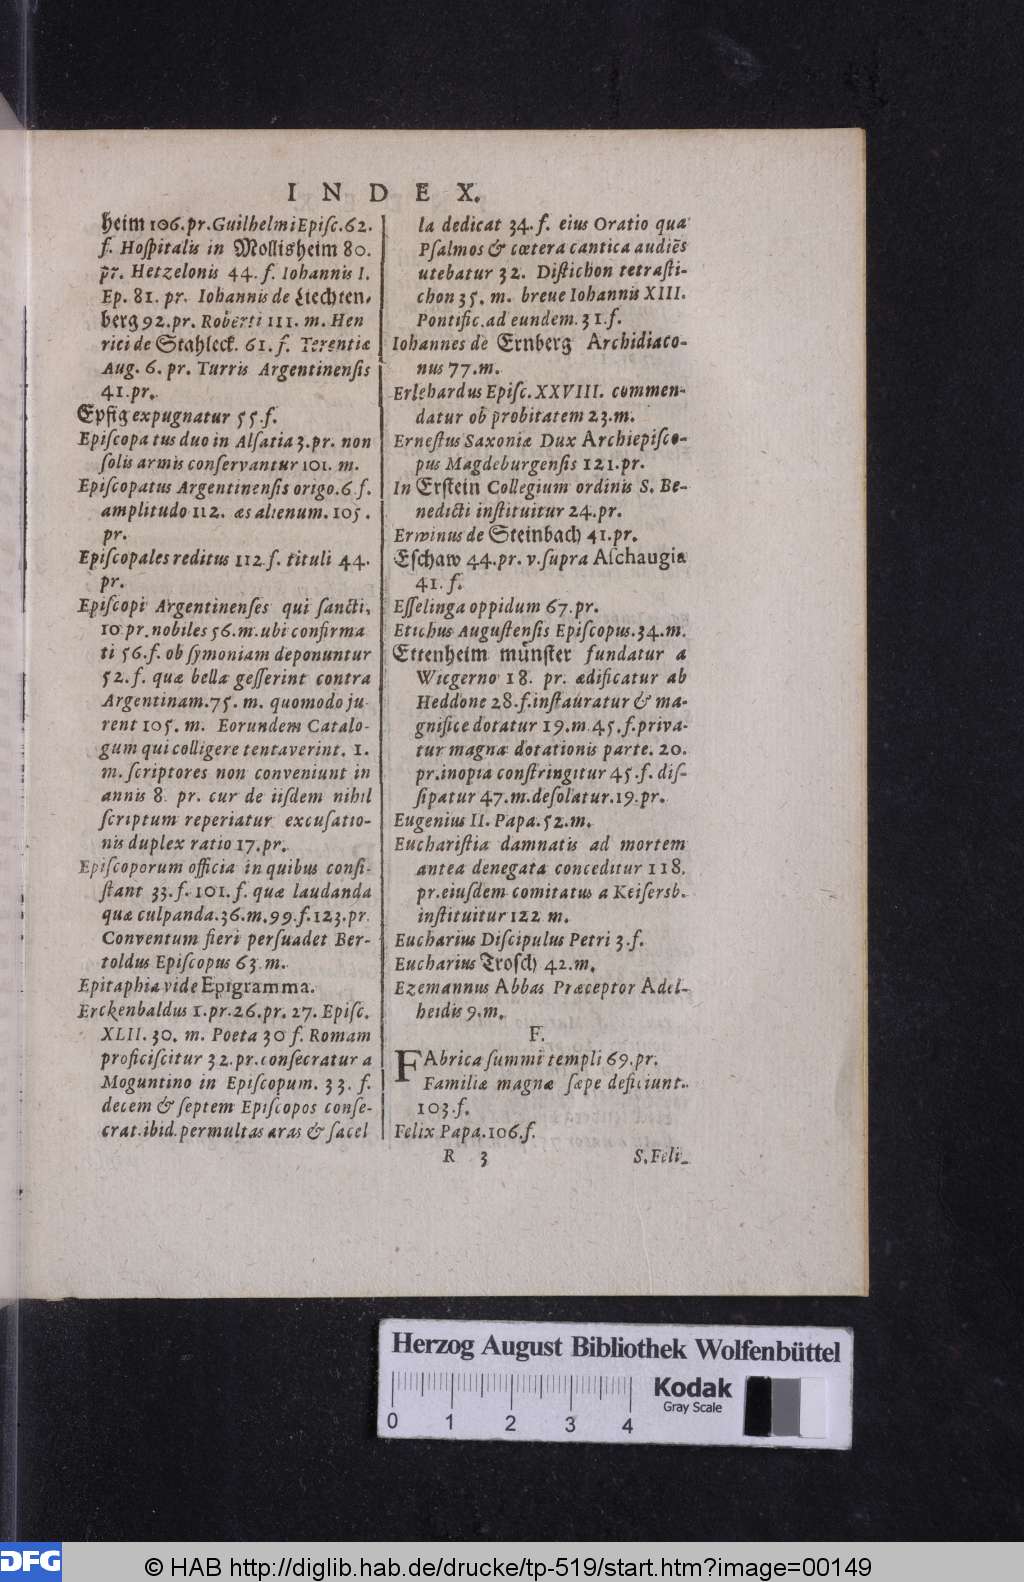 INDEX.
heim 106. pr. Guilhelmi Episc. 62.
f. Hospitalis in Mollisheim 80.
pr. Hetzelonis 44. f. Iohannis I.
Ep. 81. pr. Iohannis de Liechten-
berg 92. pr. Roberti 111. m. Hen
rici de Stahleck. 61. f. Terentiæ
Aug. 6. pr. Turris Argentinensis
41. pr.
Epfig expugnatur 55. f.
Episcopatus duo in Alsatia 3. pr. non
solis armis conservantur 101. m.
Episcopatus Argentinensis origo. 6. f.
amplitudo 112. æs alienum. 105.
pr.
Episcopales reditus 112 f. tituli 44.
pr.
Episcopi Argentinenses qui sancti,
10 pr. nobiles 56. m. ubi confirma
ti 56. f. ob symoniam deponuntur
52. f. quæ bella gesserint contra
Argentinam. 75. m. quomodo ju
rent 105. m. Eorundem Catalo-
gum qui colligere tentaverint. 1.
m. scriptores non conveniunt in
annis 8. pr. cur de iisdem nihil
scriptum reperiatur excusatio-
nis duplex ratio 17. pr.
Episcoporum officia in quibus consi-
stant 33. f. 101. f. quæ laudanda
quæ culpanda. 36. m. 99. f. 123. pr.
Conventum fieri persuadet Ber-
toldus Episcopus 63. m.
Epitaphia vide Epigramma.
Erckenbaldus 1. pr. 26. pr. 27. Episc.
XLII. 30. m. Poeta 30 f. Romam
proficiscitur 32. pr. consecratur a
Moguntino in Episcopum. 33. f.
decem & septem Episcopos conse-
crat. ibid. permultas aras & sacel
la dedicat 34. f. eius Oratio qua
Psalmos & cœtera cantica audiẽs
utebatur 32. Distichon tetrasti-
chon 35. m. breue Iohannis XIII.
Pontific. ad eundem. 31. f.
Iohannes de Ernberg Archidiaco-
nus 77. m.
Erlehardus Episc. XXVIII. commen-
datur ob probitatem 23. m.
Ernestus Saxoniæ Dux Archiepisco-
pus Magdeburgensis 121. pr.
In Erstein Collegium ordinis S. Be-
nedicti instituitur 24. pr.
Erwinus de Steinbach 41. pr.
Eschaw 44. pr. v. supra Aschaugia
41. f.
Esselinga oppidum 67. pr.
Etichus Augustensis Episcopus. 34. m.
Ettenheim münster fundatur a
Wicgerno 18. pr. ædificatur ab
Heddone 28. f. instauratur & ma-
gnifice dotatur 19. m. 45. f. priva-
tur magna dotationis parte. 20.
pr. inopia constringitur 45. f. dis-
sipatur 47. m. desolatur. 19. pr.
Eugenius II. Papa. 52. m.
Eucharistia damnatis ad mortem
antea denegata conceditur 118.
pr. eiusdem comitatus a Keisersb.
instituitur 122 m.
Eucharius Discipulus Petri 3. f.
Eucharius Trosch 42. m.
Ezemannus Abbas Præceptor Adel-
heidis 9. m.
F.
FAbrica summi templi 69. pr.
Familiæ magnæ sæpe deficiunt.
103. f.
Felix Papa. 106. f.
R 3 S. Feli-
Herzog August Bibliothek Wolfenbüttel
0 1 2 3 4
Kodak
Gray Scale
DFG
© HAB http://diglib.hab.de/drucke/tp-519/start.htm?image=00149